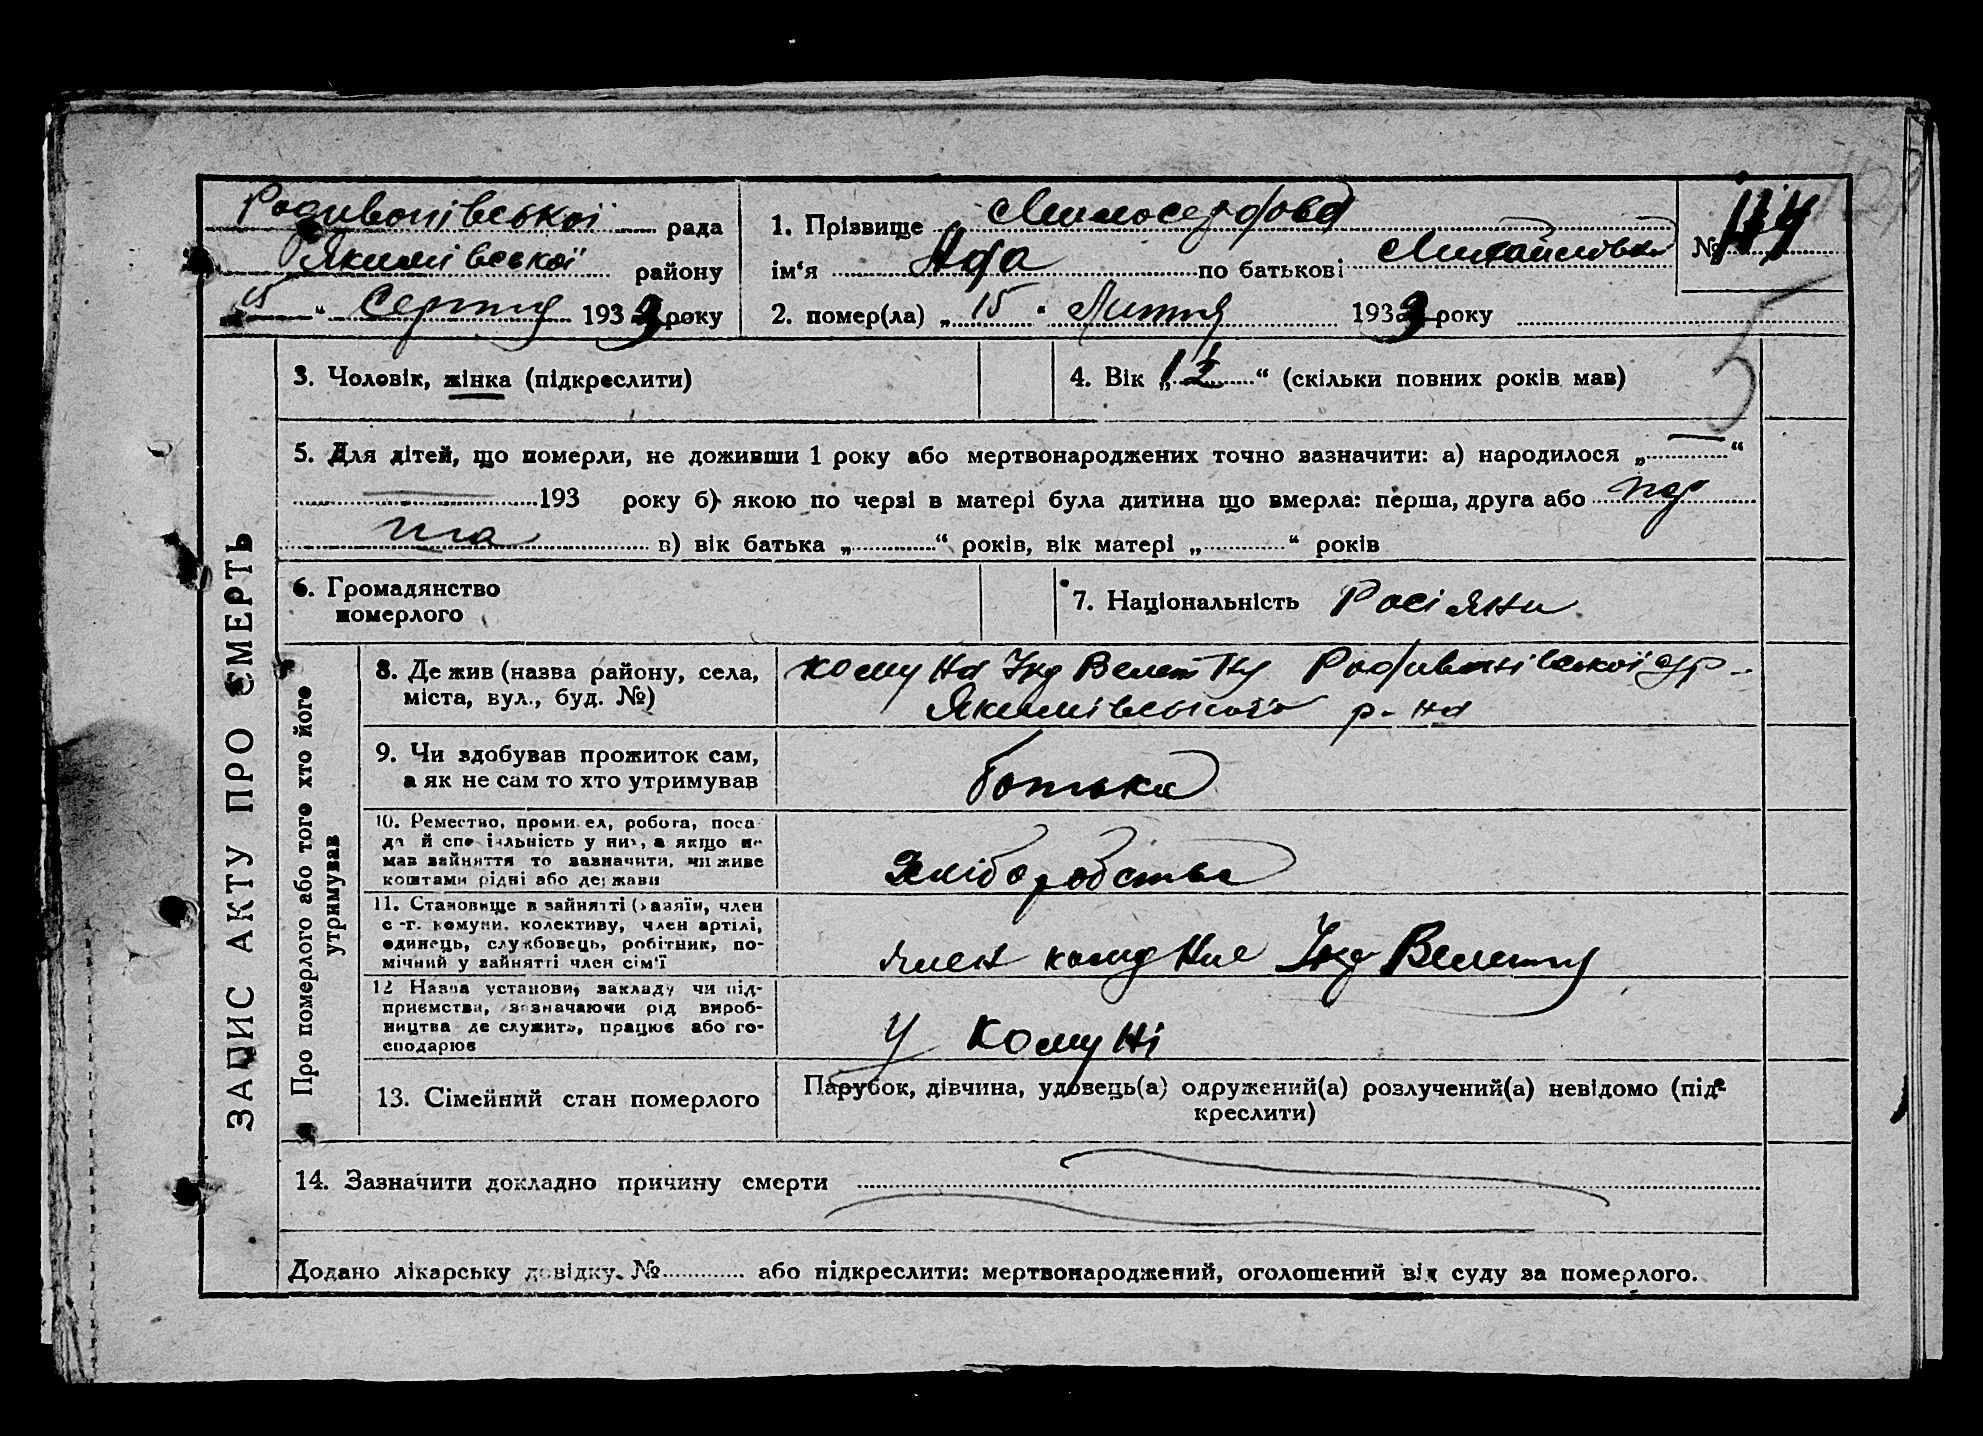 Родивонівської рада
Якимівської району
15 " Серпня 1933 року
1. Прізвище Милосердова
ім'я Ада по батькові Михайлівна
№
2. помер(ла) „ 15 " Липня 1933 року
5
3. Чоловік, жінка (підкреслити)
4. Вік „ 1½ " (скільки повних років мав)
5. Для дітей, що померли, не доживши 1 року або мертвонароджених точно зазначити: а) народилося „ — "
— 193 року б) якою по черзі в матері була дитина що вмерла: перша, друга або пер
ша в) вік батька „ " років, вік матері „ " років
6. Громадянство
померлого
7. Національність Росіяни
ЗАПИС АКТУ ПРО СМЕРТЬ
Про померлого або того хто його
утримував
8. Де жив (назва району, села,
міста, вул., буд. №)
комуна Інд Велетну Родивонівської с/р
Якимівського р-на
9. Чи здобував прожиток сам,
а як не сам то хто утримував
батька
10. Ремество, промисел, робота, поса-
да й спеціяльність у них, а якщо не
мав зайняття то зазначити, чи живе
коштами рідні або держави
хліборобства
11. Становище в зайнятті (хазяїн, член
с.-г. комуни, колективу, член артілі,
одинець, службовець, робітник, по-
мічний у зайнятті член сім'ї
член комуни Інд Велетну
12 Назва установи, закладу чи під-
приємства, зазначаючи рід вироб-
ництва де служить, працює або го-
сподарює
у комуні
13. Сімейний стан померлого
Парубок, дівчина, удовець(а) одружений(а) розлучений(а) невідомо (під-
креслити)
14. Зазначити докладно причину смерти
Додано лікарську довідку № або підкреслити: мертвонароджений, оголошений від суду за померлого.